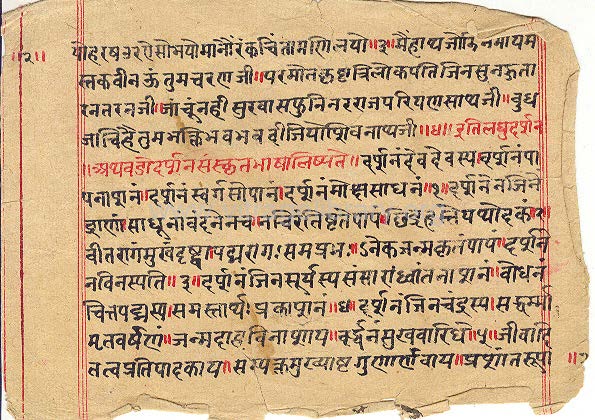 ॥२॥ योहरषउरऐसोभयोमानौंरंकचिंतामणिलयो॥३॥मैंहाथजोडिनमायम
स्तकवीनऊंतुमचरणजी॥परमोतकृष्टत्रिलोकपतिजिनसुनहुता
रनतरनजी।जाचूंनहीसुरवासफुनिनरराजपरियणसाथजी॥बुध
जाचिहैतुमभक्तिभवभवदीजियोशिवनाथजी॥४॥इतिलघुदर्शन
॥अथवडादर्शनसंस्कृतभाषालिष्यते॥दर्शनंदेवदेवस्यदर्शनंपा
पनाशनं।दर्शनंस्वर्गसोपानं।दर्शनंमोक्षसाधनं॥१॥दर्शनेनजिनें
द्राणां।साधूनांवंदनेनच।नचिरंतिष्टतेपापं।छिद्रहस्तेयथोदकं॥२
वीतरागंमुखंदृष्ट्वा।पद्मरागसमप्रभं।ऽनेकजन्मकृतंपापं।दर्शने
नविनस्पति॥३॥दर्शनंजिनसूर्यस्यसंसारध्वांतनाशनं॥बोधनं
चित्तपद्मस्यसमस्तार्थप्रकाशनं॥४॥दर्शनंजिनचंद्रस्यसद्धर्म्मा
मृतवर्षणं॥जन्मदाहविनाशाय॥वर्द्धनंसुखवारिधे॥५॥जीवादि
तत्वप्रतिपादकाय॥सम्यक्तमुख्याष्टगुणार्णवाय॥प्रशांतरूपा